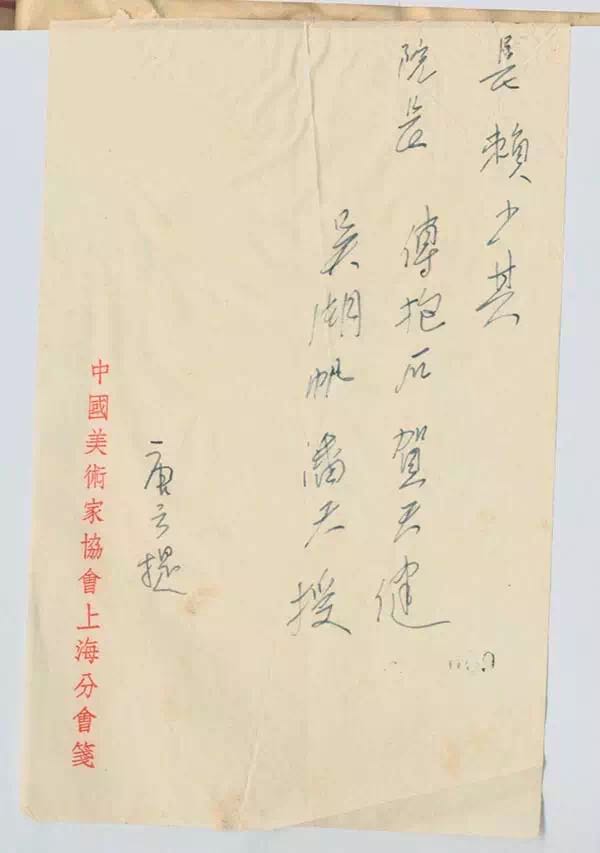 長 賴少其
院长 傅抱石 賀天健
吳湖帆 潘天授
唐云提
中國美術家協會上海分會箋